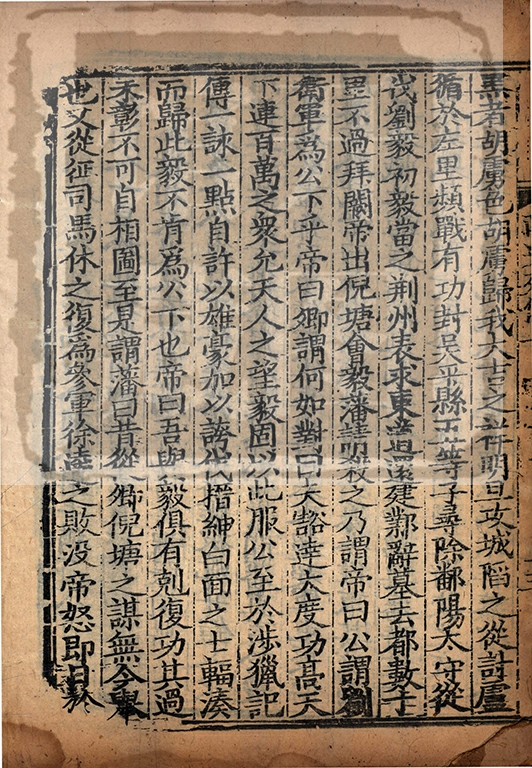 黑者胡虜色胡虜歸我大吉之祥明旦攻城陷之從討盧
循於左里頻戰有功封吳平縣五等子尋除鄱陽太守從
伐劉毅初毅當之荆州表求東道還建鄴辭墓去都數十
里不過拜闕帝出倪塘會毅藩請殺之乃謂帝曰公謂劉
衛軍為公下乎帝曰卿謂何如對曰夫豁達大度功高天
下連百萬之衆允天人之望毅固以此服公至於涉獵記
傳一詠一點自許以雄豪加以誇伐搢紳白面之士輻湊
而歸此毅不肯為公下也帝曰吾與毅俱有剋復功其過
未彰不可自相圖至是謂藩曰昔從卿倪塘之謀無今舉
也又從征司馬休之復為參軍徐逵之敗没帝怒即日於